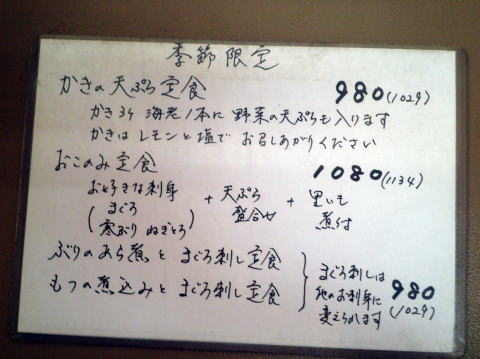 季節限定
かきの天ぷら定食 980(1029)
かき3ケ 海老1本に 野菜の天ぷらも入ります
かきは レモンと塩で お召しあがりください
おこのみ定食 1080(1134)
お好きな刺身 + 天ぷら盛合せ + 里いも煮付
(まぐろ
寒ぶり ねぎとろ)
ぶりのあら煮と まぐろ刺し定食
もつの煮込みと まぐろ刺し定食
まぐろ刺しは
他のお刺身に
変えられます
980
(1029)